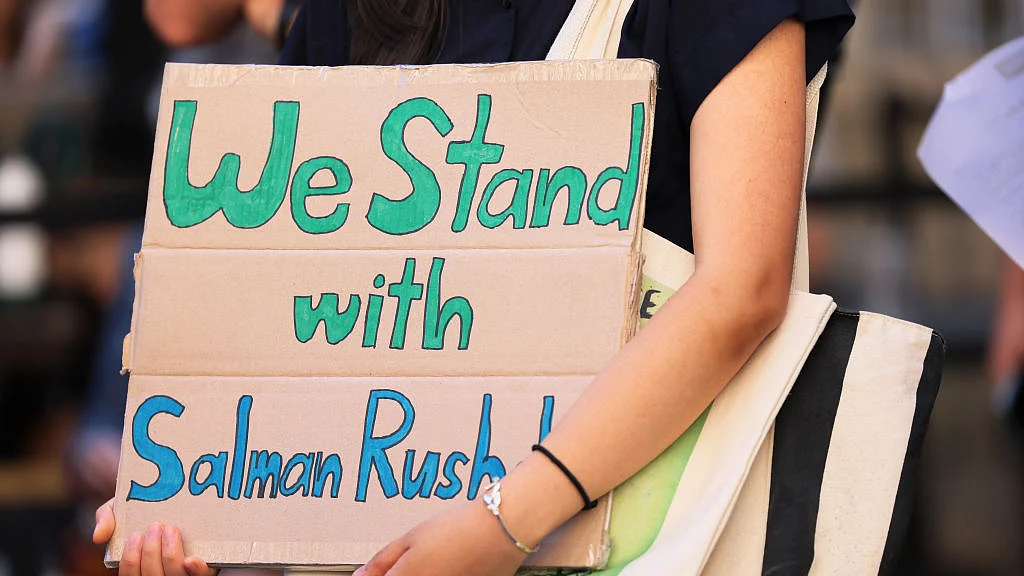 We Stand
with
Salman Rush
E